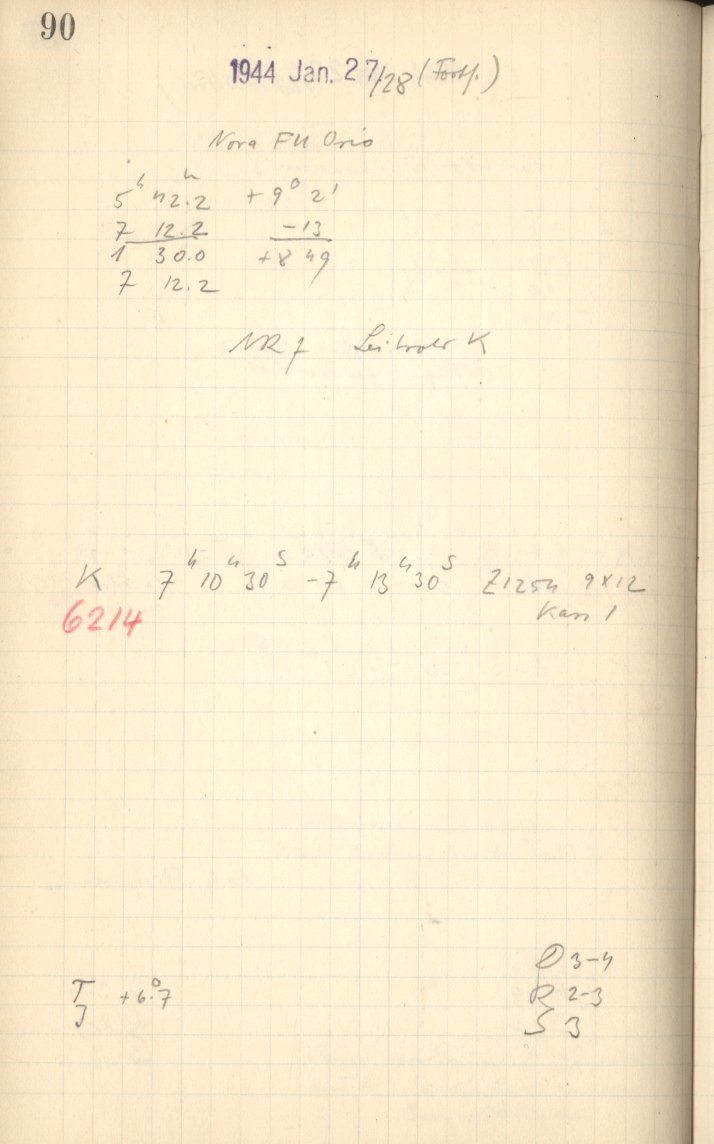 90
1944 Jan. 27/28 (Forts.)
Nova FU Orio
5ʰ 42.2ᵐ +9° 2'
7 12.2 -13
1 30.0 +8 49
7 12.2
NR 7 Leitrohr K
K 7ʰ 10ᵐ 30ˢ - 7ʰ 13ᵐ 30ˢ Z1254 9x12
6214 Kass 1
D 3-4
T +6°.7 R 2-3
J S 3